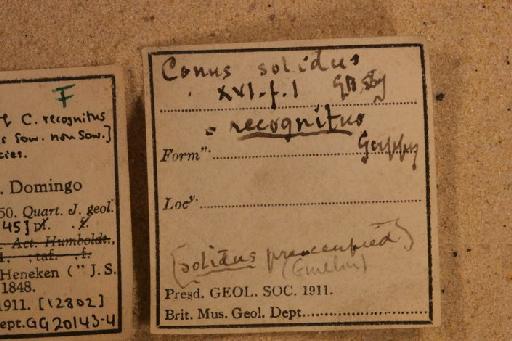 F
& C. recognitus
Sow. non Sow.]
. Domingo
50. Quart. J. geol.
45]
Act. Humboldt.
: taf. . f.
Heneken ("J.S.
1848.
1911. [12802]
ept. GG20143-4
Conus solidus
XVI. f. 1 G.B. Sby
= recognitus
Guppy
Form"
Locy
[solidus preoccupied]
(Gmelin)
Presd. GEOL. SOC. 1911.
Brit. Mus. Geol. Dept.